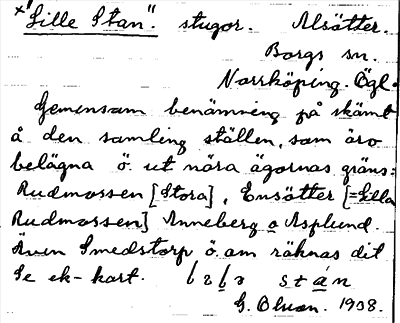 ˣ"Lille Stan". stugor. Alsätter.
Borgs sn.
Norrköping. Ögl.
Gemensam benämning på skämt
å den samling ställen, som äro
belägna ö. ut nära ägornas gräns:
Rudmossen [Stora], Ensätter [=Lilla
Rudmossen] Anneberg o Asplund.
Även Smedstorp ö. om räknas dit
Se ek-kart.
G. Olson. 1908.